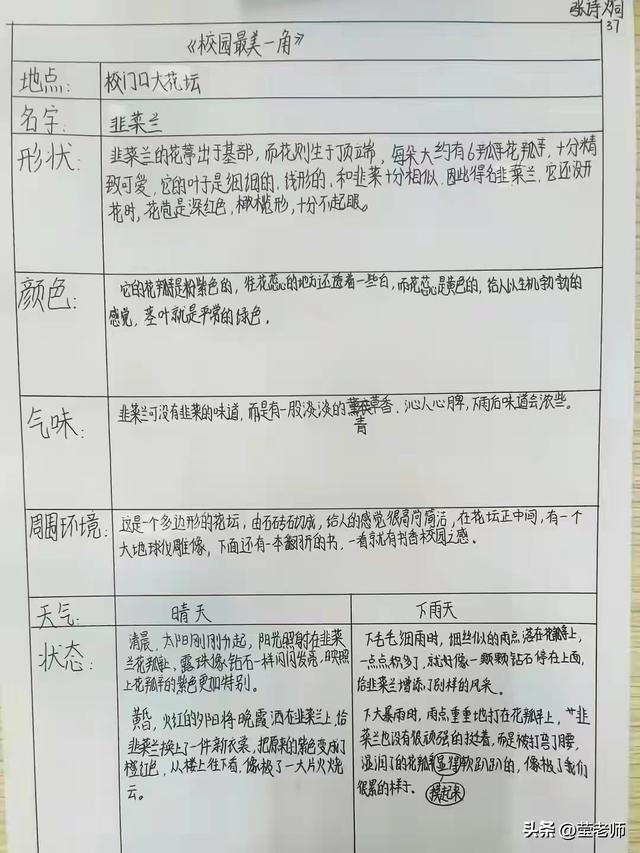 张诗炯
37
《校园最美一角》
地点：
校门口大花坛
名字：
韭菜兰
形状：
韭菜兰的花葶出于基部，而花则生于顶端，每朵大约有6瓣花瓣，十分精
致可爱，它的叶子是细细的，线形的，和韭菜十分相似，因此得名韭菜兰，它还没开
花时，花苞是深红色，橄榄形，十分不起眼。
颜色：
它的花瓣是粉紫色的，往花蕊心的地方还透着一些白，而花蕊心是黄色的，给人以生机勃勃的
感觉，茎叶就是平常的绿色。
气味：
韭菜兰可没有韭菜的味道，而是有一股淡淡的草香，沁人心脾，下雨后味道会浓些。
青
周围环境：
这是一个多边形的花坛，由石砖切成，给人的感觉很高尚简洁，在花坛正中间，有一个
大地球仪雕像，下面还有一本翻开的书，一看就有书香校园之感。
天气：
晴天
下雨天
状态：
清晨，太阳刚刚升起，阳光照射在韭菜
兰花瓣上，露珠像钻石一样闪闪发亮，映照
上花瓣的紫色更加特别。
黄昏，火红的夕阳将晚霞洒在韭菜兰上，给
韭菜兰换上了一件新衣裳，把原来的紫色变成了
橙红色，从楼上往下看，像极了一大片火烧
云。
下毛毛细雨时，细丝似的雨点落在花瓣上，
一点点积多了，就好像一颗颗钻石停在上面，
给韭菜兰增添了别样的风采。
下大暴雨时，雨点重重地打在花瓣上，韭
菜兰也没有很顽强的挺着，而是被打弯了腰，
湿润了的花瓣显得软趴趴的，像极了我们
很累的样子。
摸起来
头条 @莹老师